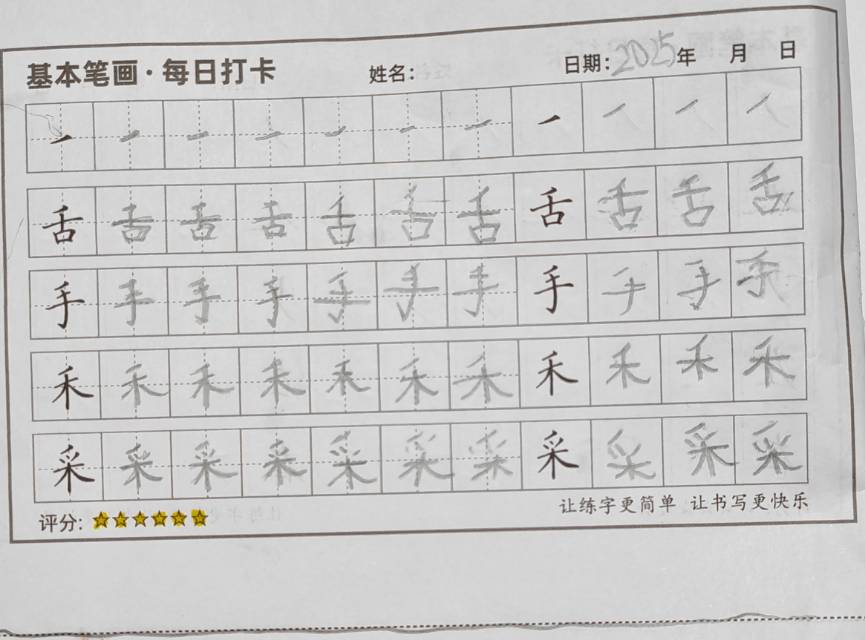 基本笔画·每日打卡 姓名: 日期:2025年 月 日
㇀ ㇀ ㇀ ㇀ ㇀ ㇀ ㇀ ㇀ ㇀ ㇀ ㇀
舌 舌 舌 舌 舌 舌 舌 舌 舌 舌 舌
手 手 手 手 手 手 手 手 手 手 手
禾 禾 禾 禾 禾 禾 禾 禾 禾 禾 禾
采 采 采 采 采 采 采 采 采 采 采
评分: 让练字更简单 让书写更快乐